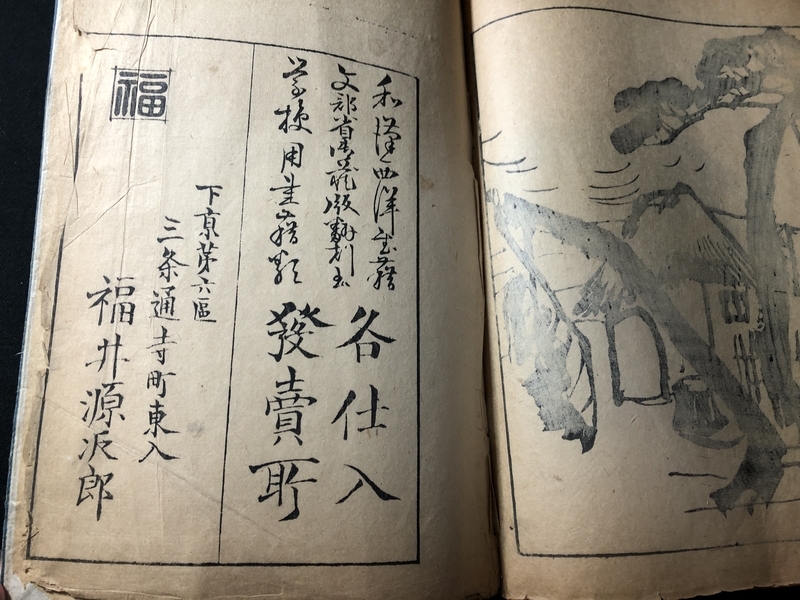 和漢西洋書籍
文部省御蔵版翻刻書
学校用書籍類
各仕入
發賣所
下京第六區
三条通寺町東入
福井源次郎
福